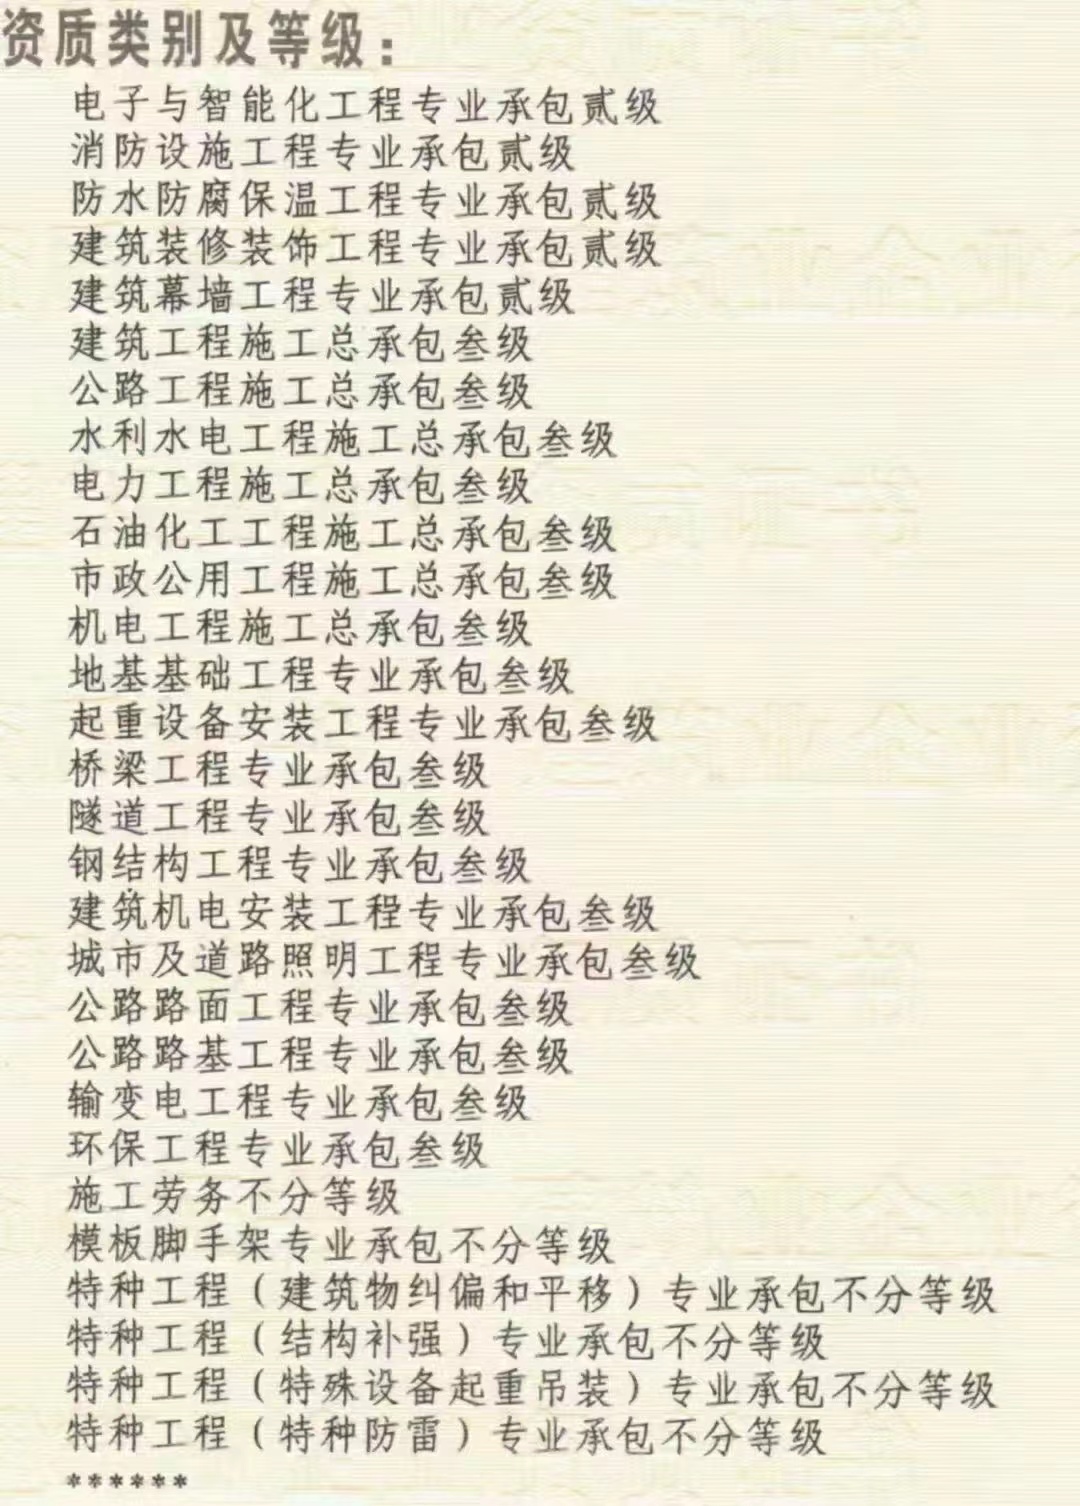 资质类别及等级：
电子与智能化工程专业承包贰级
消防设施工程专业承包贰级
防水防腐保温工程专业承包贰级
建筑装修装饰工程专业承包贰级
建筑幕墙工程专业承包贰级
建筑工程施工总承包叁级
公路工程施工总承包叁级
水利水电工程施工总承包叁级
电力工程施工总承包叁级
石油化工工程施工总承包叁级
市政公用工程施工总承包叁级
机电工程施工总承包叁级
地基基础工程专业承包叁级
起重设备安装工程专业承包叁级
桥梁工程专业承包叁级
隧道工程专业承包叁级
钢结构工程专业承包叁级
建筑机电安装工程专业承包叁级
城市及道路照明工程专业承包叁级
公路路面工程专业承包叁级
公路路基工程专业承包叁级
输变电工程专业承包叁级
环保工程专业承包叁级
施工劳务不分等级
模板脚手架专业承包不分等级
特种工程（建筑物纠偏和平移）专业承包不分等级
特种工程（结构补强）专业承包不分等级
特种工程（特殊设备起重吊装）专业承包不分等级
特种工程（特种防雷）专业承包不分等级
******